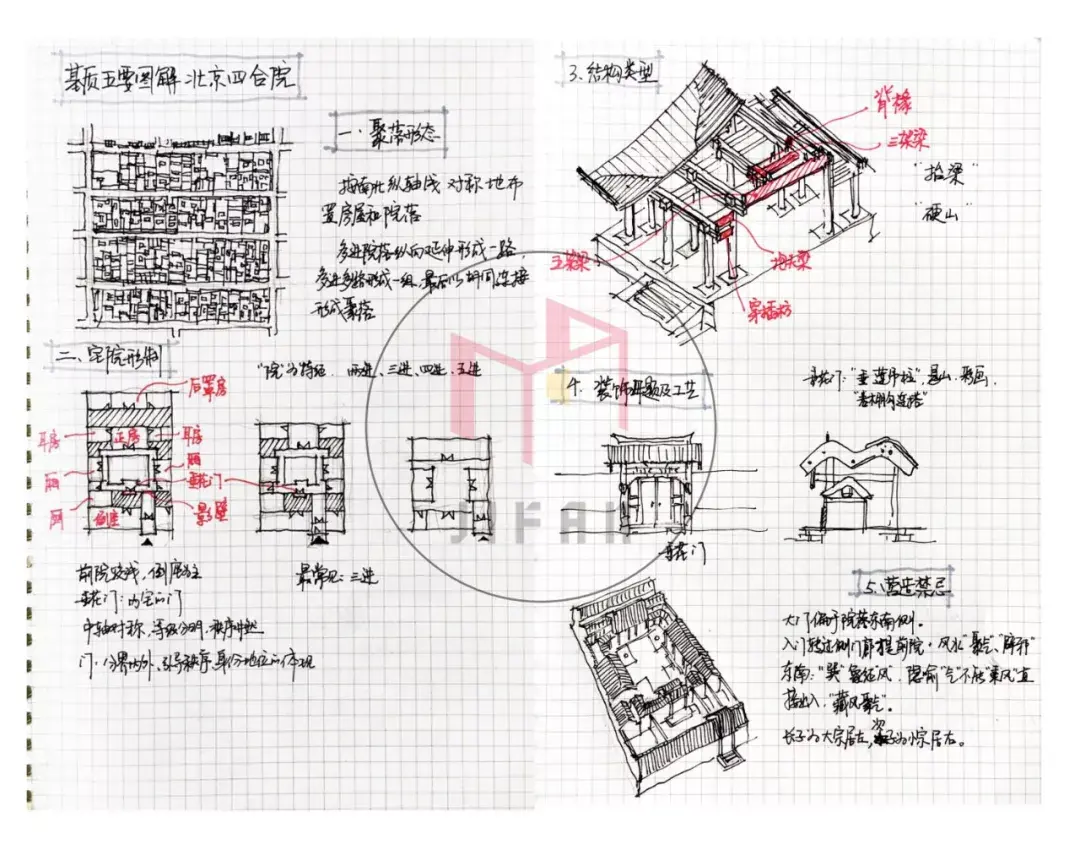 基质五要图解 北京四合院
一、聚落形态
按南北纵轴线对称地布
置房屋和院落
多进院落纵向延伸形成一路，
多进多路形成一组，最后以胡同连接
形成聚落
二、宅院形制
"院"为特征 两进、三进、四进、五进
后罩房
耳房
正房
耳房
厢
厢
垂花门
厢
倒座
影壁
前院较浅，倒座为主
垂花门：内宅的门
最常见：三进
中轴对称，等级分明，秩序井然
门：分界内外，引导秩序，身份地位的体现
3.结构类型
脊椽
三架梁
"抬梁"
"硬山"
五架梁
抱头梁
穿插枋
4.装饰母题及工艺
垂花门："垂莲吊柱"，悬山，彩画，
"卷棚勾连搭"
垂花门
5.营造禁忌
大门偏于院落东南侧。
入门转过侧门前院，风水"聚气"、"辟邪"
东南："巽"象征风，隐喻"气"不能"乘风"直
接出入，"藏风聚气"。
长子为大宗居左，次子为小宗居右。
JIFAN